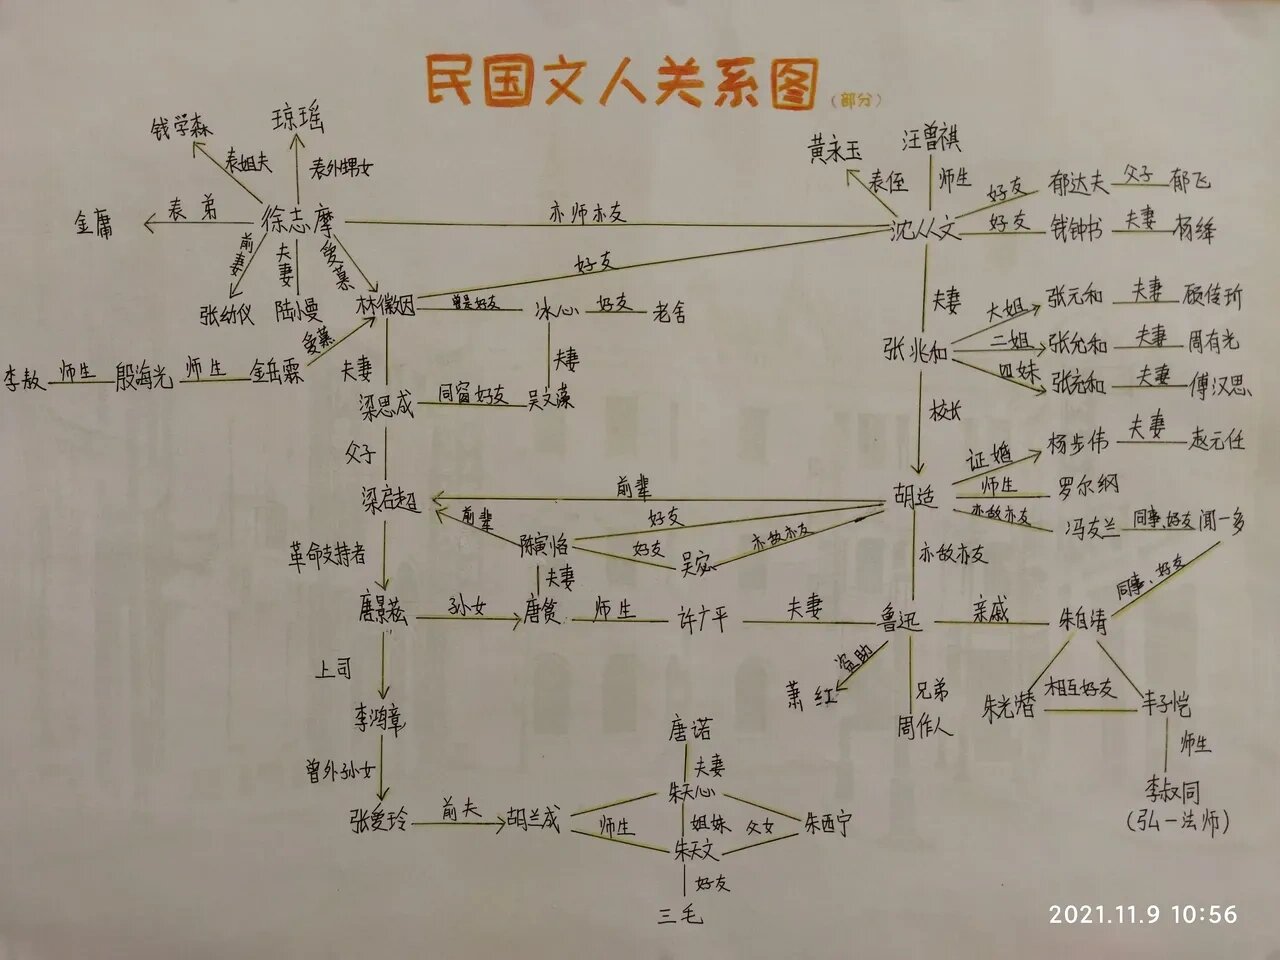 民国文人关系图(部分)
钱学森
琼瑶
表姐夫
表外甥女
金庸
表弟
徐志摩
亦师亦友
前妻
夫妻
爱慕
张幼仪
陆小曼
林徽因
好友
曾是好友
冰心
好友
老舍
黄永玉
汪曾祺
表侄
师生
沈从文
好友
郁达夫
父子
郁飞
好友
钱钟书
夫妻
杨绛
夫妻
张兆和
大姐
张元和
夫妻
顾传玠
二姐
张允和
夫妻
周有光
四妹
张充和
夫妻
傅汉思
李敖
师生
殷海光
师生
金岳霖
爱慕
夫妻
夫妻
梁思成
同窗好友
吴文藻
父子
校长
梁启超
前辈
胡适
证婚
杨步伟
夫妻
赵元任
师生
罗尔纲
亦敌亦友
冯友兰
同事、好友
闻一多
前辈
好友
陈寅恪
好友
吴宓
亦敌亦友
革命支持者
夫妻
亦敌亦友
同事、好友
唐景崧
孙女
唐筼
师生
许广平
夫妻
鲁迅
亲戚
朱自清
上司
资助
萧红
兄弟
周作人
朱光潜
相互好友
丰子恺
师生
李叔同
(弘一法师)
李鸿章
曾外孙女
张爱玲
前夫
胡兰成
师生
唐诺
夫妻
朱天心
姐妹
父女
朱西宁
朱天文
好友
三毛
2021.11.9 10:56